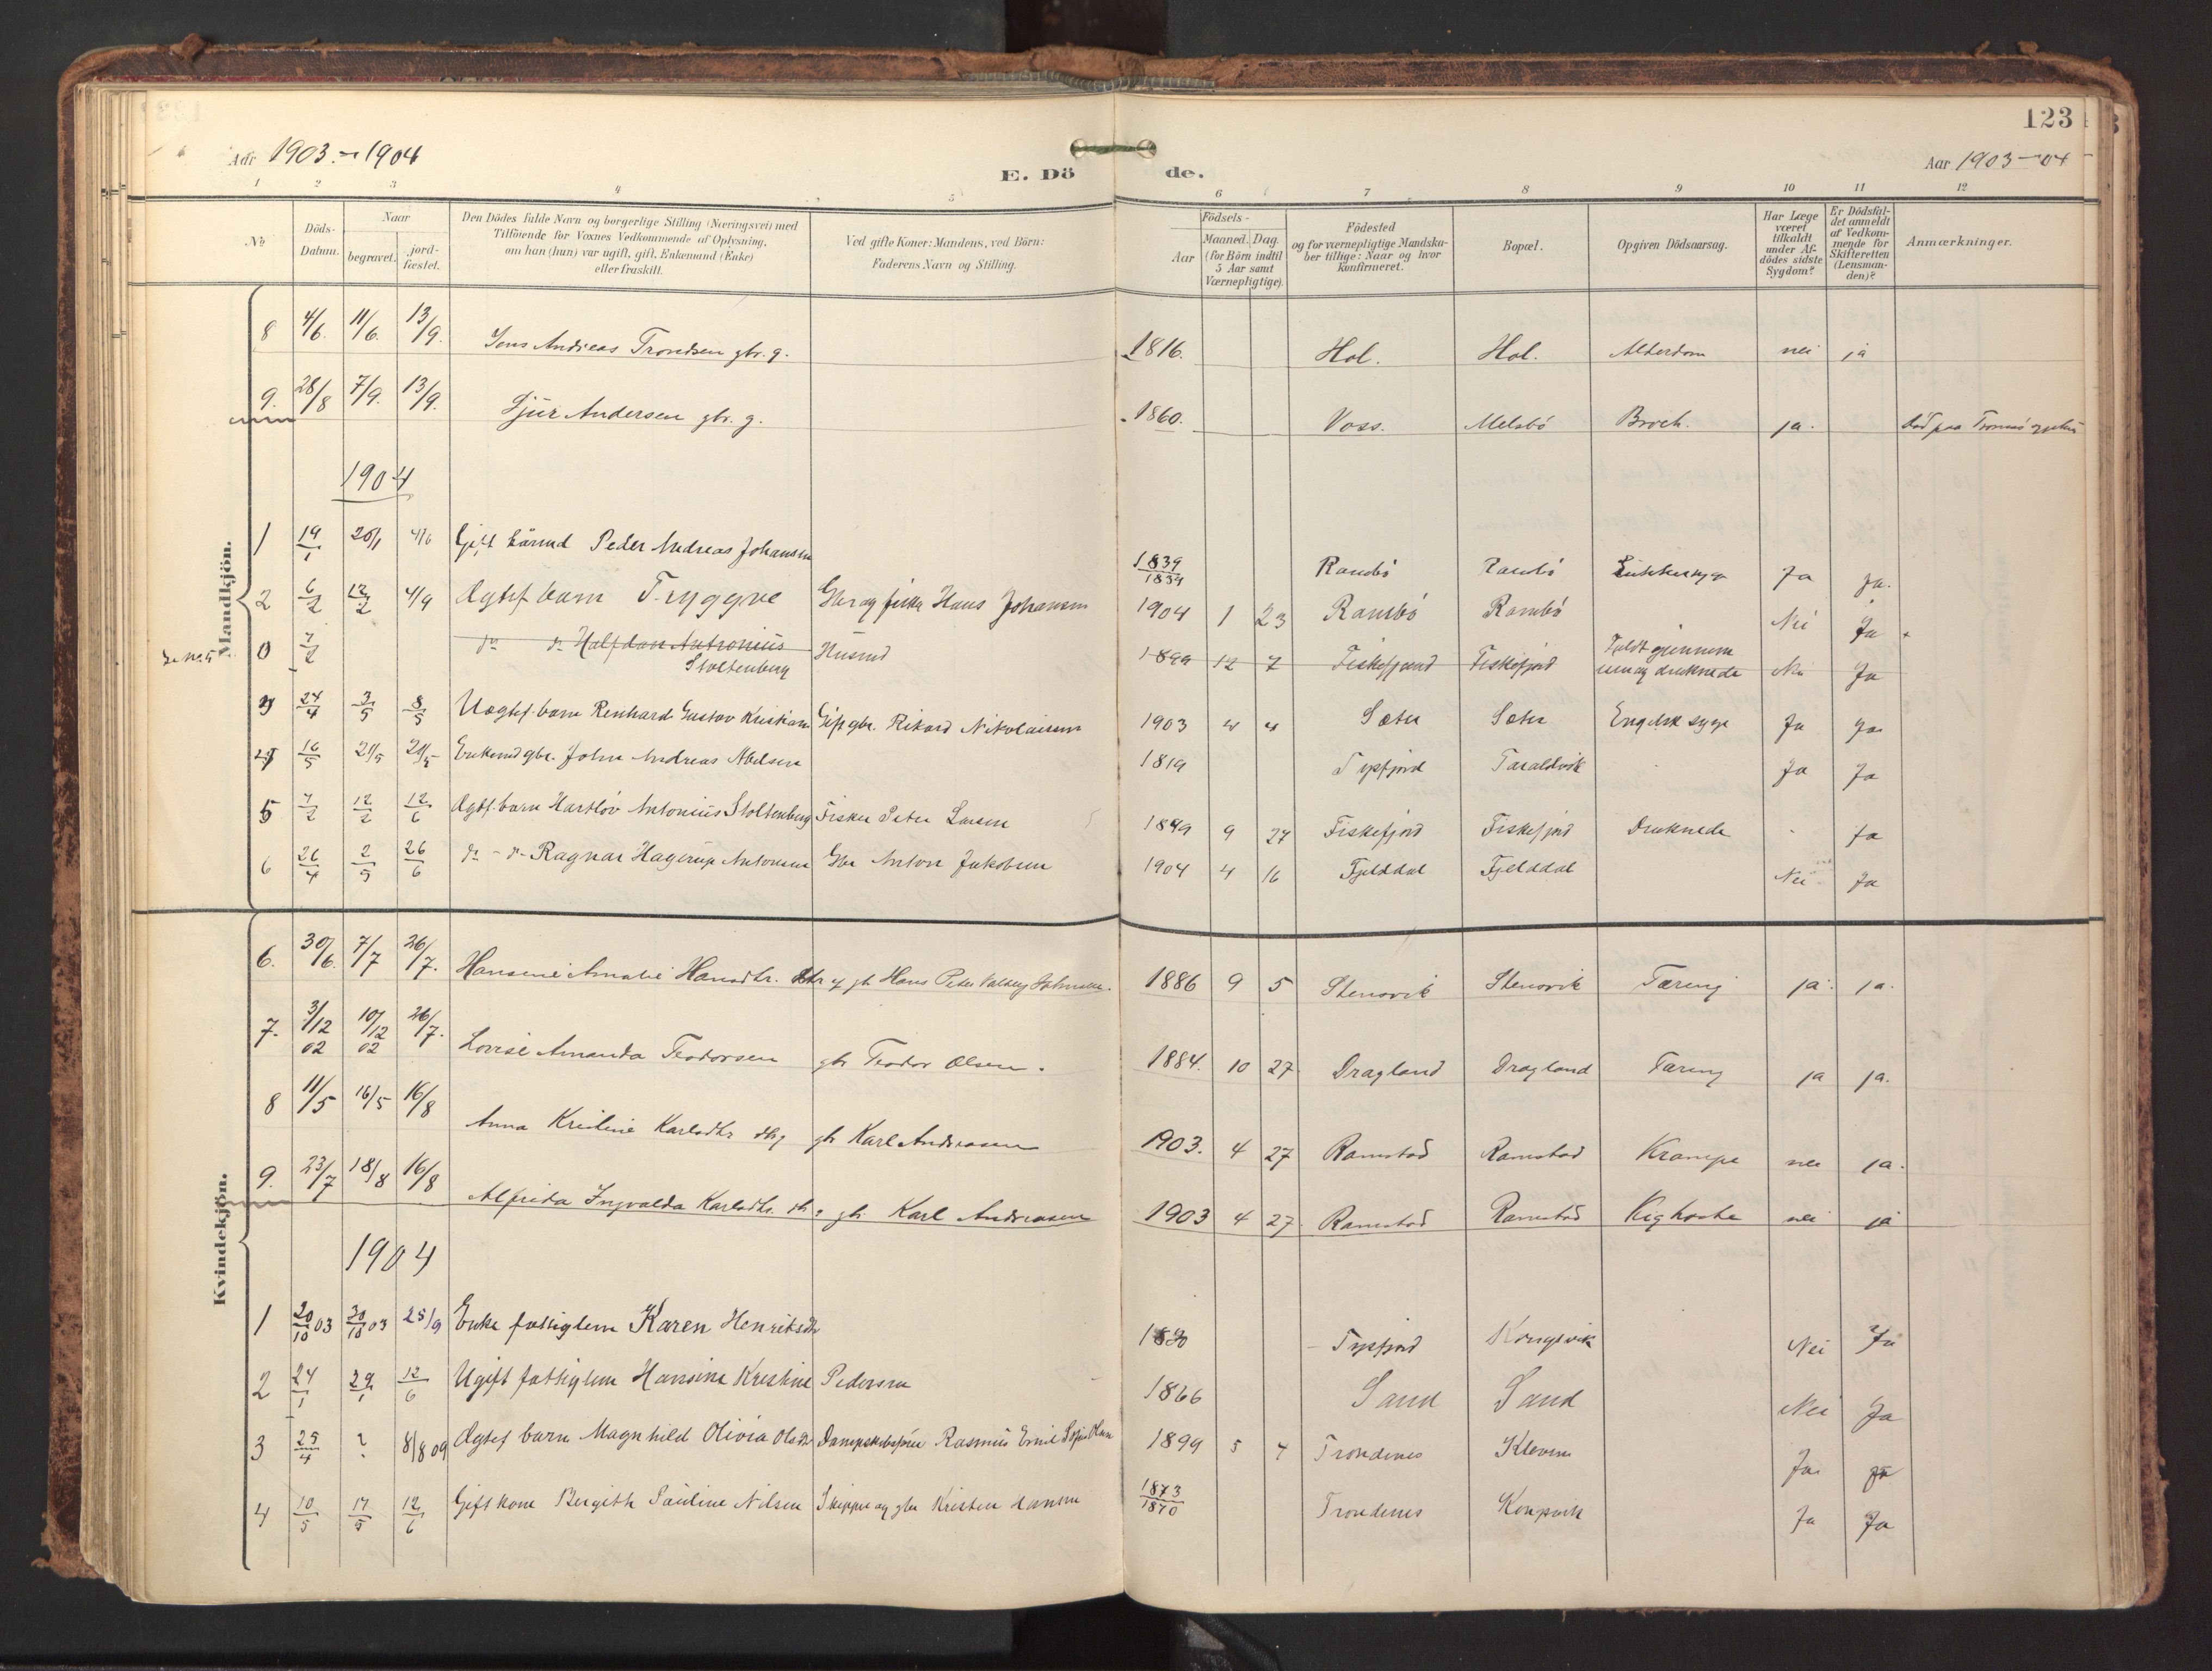 123
Aar 1903 - 1904
E. Dö de.
Aar 1903-04
1 2 3 4 5 6 7 8 9 10 11 12
№
Döds-Datum.
Naar
begravet.
jord-fæstet.
Den Dödes fulde Navn og borgerlige Stilling (Næringsvei) med
Tilföiende for Voxnes Vedkommende af Oplysning,
om han (hun) var ugift, gift, Enkemand (Enke)
eller fraskilt.
Ved gifte Koner: Mandens, ved Börn:
Faderens Navn og Stilling.
Födsels-
Aar
Maaned. Dag.
(for Börn indtil
5 Aar samt
Værnepligtige).
Födested
og for værnepligtige Mandska-
ber tillige: Naar og hvor
konfirmeret.
Bopæl.
Opgiven Dödsaarsag.
Har Læge
været
tilkaldt
under Af-
dödes sidste
Sygdom?
Er Dödsfal-
det anmeldt
af Vedkom-
mende for
Skifteretten
(Lensman-
den)?
Anmærkninger.
Mandkjön.
8 4/6. 11/6. 13/9. Jens Andreas Trondsen gbr. g. 1816. Hol. Hol. Alderdom nei ja
9. 28/8 7/9. 13/9. Sjur Andersen gbr. g. 1860. Voss. Melsbö Broch. ja. död paa Tromsö
1904
1 19/1 4/6 Gift Peder Andreas Johansen 1839 1834 Ja ja.
2 6/2 12/2 4/9 Ægtef barn Tryggve Hans Johansen 1904 1 23 Rambö Rambö Nei Ja
0 7/2 do do Halfdan Antonius
Stoltenberg Husmd 1899 12 7 Fiskefjord Fiskefjord Faldt gjennem
isen og druknede Nei Ja
3 24/4 3/5 8/5 Uægtef. barn Renhard Gustav Kristian gbr. Rikard Nikolaisen 1903 4 4 Sæter Sæter Engelsk syge Ja Ja
4 16/5 21/5 Enkemd gbr. John Andreas Abelsen 1819 Tysfjord Taraldvik Ja Ja
5 7/2 12/2 12/6 Ægtf. barn Antonius Stoltenberg Fisker Peter Larsen 1899 9 27 Fiskefjord Fiskefjord Druknede - Ja
6 26/4 2/5 26/6 do - do Ragnar Hagerup Antonsen Gbr Anton Jakobsen 1904 4 16 Fjelddal Fjelddal Nei Ja
Kvindekjön.
6. 30/6. 7/7 26/7. Hansine Amalie Hansdtr. gb Hans Peter Johnsen. 1886 9 5 Stensvik Stensvik Tæring ja. ja.
7. 3/12 02 10/12 02 26/7. Lovise Amanda Teodorsen gbr Teodor Olsen. 1884. 10 27 Dragland Dragland Tæring ja ja.
8 11/5 16/5 16/8 Anna Kristine Karlsdtr gbr Karl Andreasen 1903. 4 27 Ramstad Ramstad Krampe nei ja.
9. 23/7 18/8 16/8 Alfrida Ingvalda Karlsdtr. gbr. Karl Andreasen 1903 4 27 Ramstad Ramstad Kighoste nei ja
1904
1 20/10 03 30/10 03 25/9 Enke fattiglem Karen Henriksdtr Tysfjord Kongsvik Nei Ja
2 24/1 29/1 12/6 Ugift fattiglem Hansine Kristine Pedersen 1866 Sand Sand Nei Ja
3 25/4 ? 8/8 09 Ægtef barn Magnhild Olivia Olsdtr Rasmus Emil Olsen 1899 5 4 Trondenes Kleven Ja Ja
4 10/5 17/5 12/6 Gift kone Bergith Pauline Nilsen Skipper og gbr Kristen Hansen 1873 1870 Trondenes Ja Ja